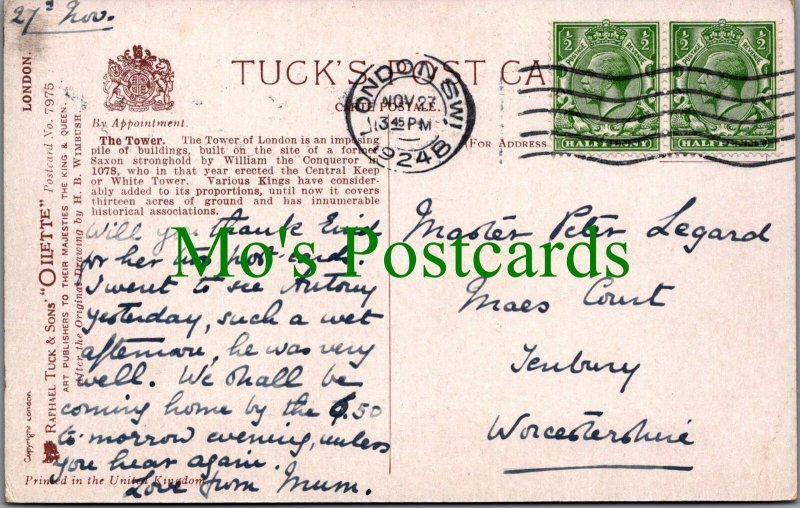 27th Nov.
TUCK'S POST CA
CARTE POSTALE
LONDON. S.W.1
NOV 27
3 45 PM
1924 B
1/2 POSTAGE 1/2
HALFPENNY
1/2 POSTAGE 1/2
HALFPENNY
By Appointment.
(For Address
The Tower. The Tower of London is an imposing
pile of buildings, built on the site of a former
Saxon stronghold by William the Conqueror in
1078, who in that year erected the Central Keep
or White Tower. Various Kings have consider-
ably added to its proportions, until now it covers
thirteen acres of ground and has innumerable
historical associations.
Will you thank Enid
for her two post-cards.
I went to see Antony
yesterday, such a wet
afternoon, he was very
well. We shall be
coming home by the 6.50
to-morrow evening, unless
you hear again.
Love from Mum.
Master Peter Legard
Maes Court
Tenbury
Worcestershire
Mo's Postcards
LONDON.
"OILETTE" Postcard No. 7975
RAPHAEL TUCK & SONS'
ART PUBLISHERS TO THEIR MAJESTIES THE KING & QUEEN.
After the Original Drawing by H. B. WIMBUSH.
Copyright London
Printed in the United Kingdom